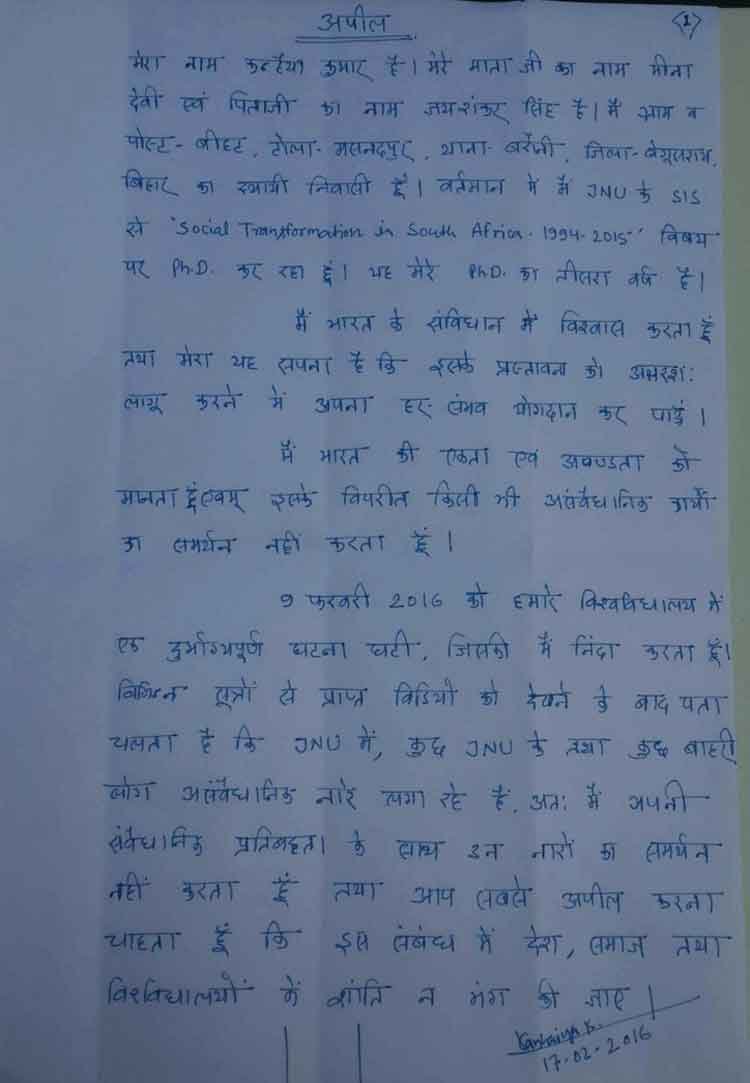 अपील
<1>
मेरा नाम कन्हैया कुमार है। मेरे माता जी का नाम मीना
देवी एवं पिताजी का नाम जयशंकर सिंह है। मैं ग्राम व
पोस्ट - बीहट, टोला - मसनदपुर, थाना - बरौनी, जिला - बेगूसराय,
बिहार का स्थायी निवासी हूँ। वर्तमान में मैं JNU के SIS
से 'Social Transformation in South Africa - 1994-2015' विषय
पर Ph.D. कर रहा हूं। यह मेरे Ph.D. का तीसरा वर्ष है।
मैं भारत के संविधान में विश्वास करता हूँ
तथा मेरा यह सपना है कि इसके प्रस्तावना को अक्षरश:
लागू करने में अपना हर संभव योगदान कर पाऊं।
मैं भारत की एकता एवं अखण्डता को
मानता हूं एवम् इसके विपरीत किसी भी असंवैधानिक कार्यो
का समर्थन नहीं करता हूँ।
9 फरवरी 2016 को हमारे विश्वविद्यालय में
एक दुर्भाग्यपूर्ण घटना घटी, जिसकी मैं निंदा करता हूँ।
विभिन्न सूत्रों से प्राप्त विडियो को देखने के बाद पता
चलता है कि JNU में, कुछ JNU के तथा कुछ बाहरी
लोग असंवैधानिक नारे लगा रहे हैं. अत: मैं अपनी
संवैधानिक प्रतिबद्धता के साथ उन नारों का समर्थन
नहीं करता हूँ तथा आप सबसे अपील करना
चाहता हूँ कि इस संबंध में देश, समाज तथा
विश्वविद्यालयों में शांति न भंग की जाए।
Kanhaiya K.
17-02-2016